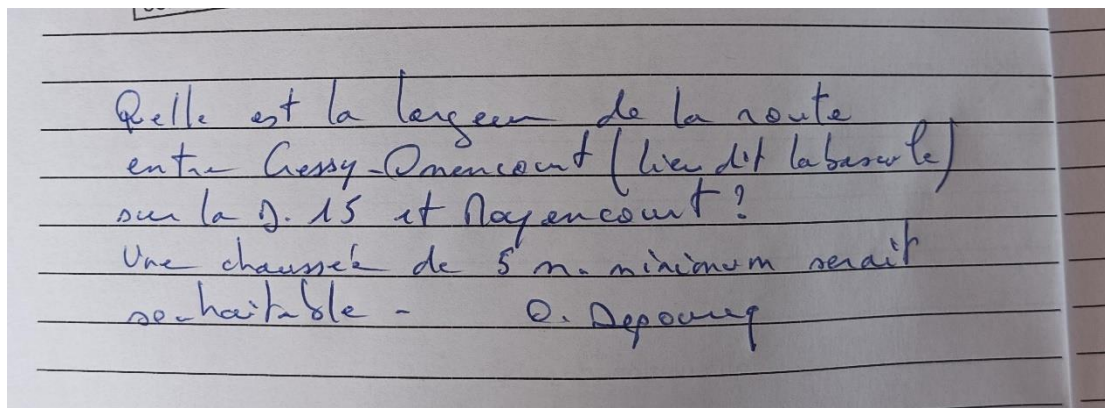 Qelle est la largeur de la route
entre Cressy-Omencourt (lieu dit la bascule)
sur la D. 15 et Moyencourt ?
Une chaussée de 5 m. minimum serait
souhaitable - O.